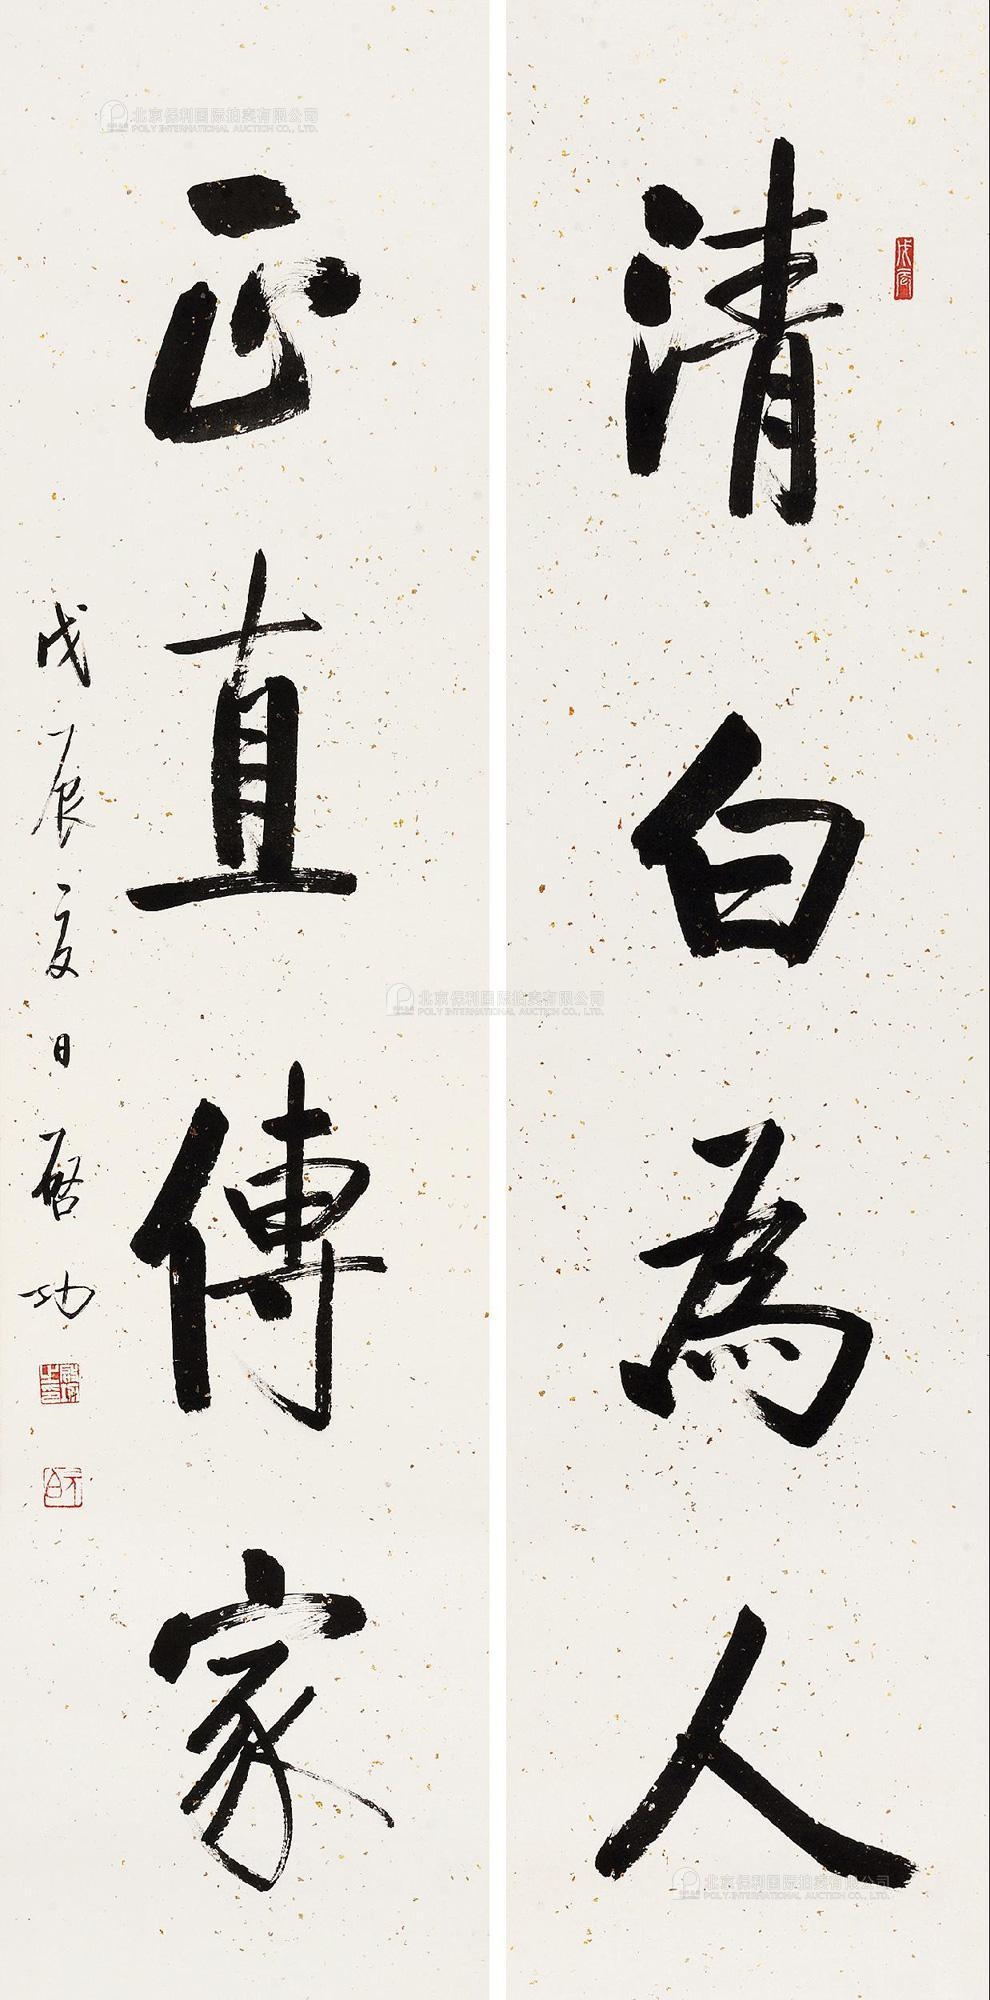 清白為人
正直傳家
戊辰夏日 啓功
戊辰
元白
北京保利国际拍卖有限公司
POLY INTERNATIONAL AUCTION CO., LTD.
北京保利国际拍卖有限公司
POLY INTERNATIONAL AUCTION CO., LTD.
北京保利国际拍卖有限公司
POLY INTERNATIONAL AUCTION CO., LTD.